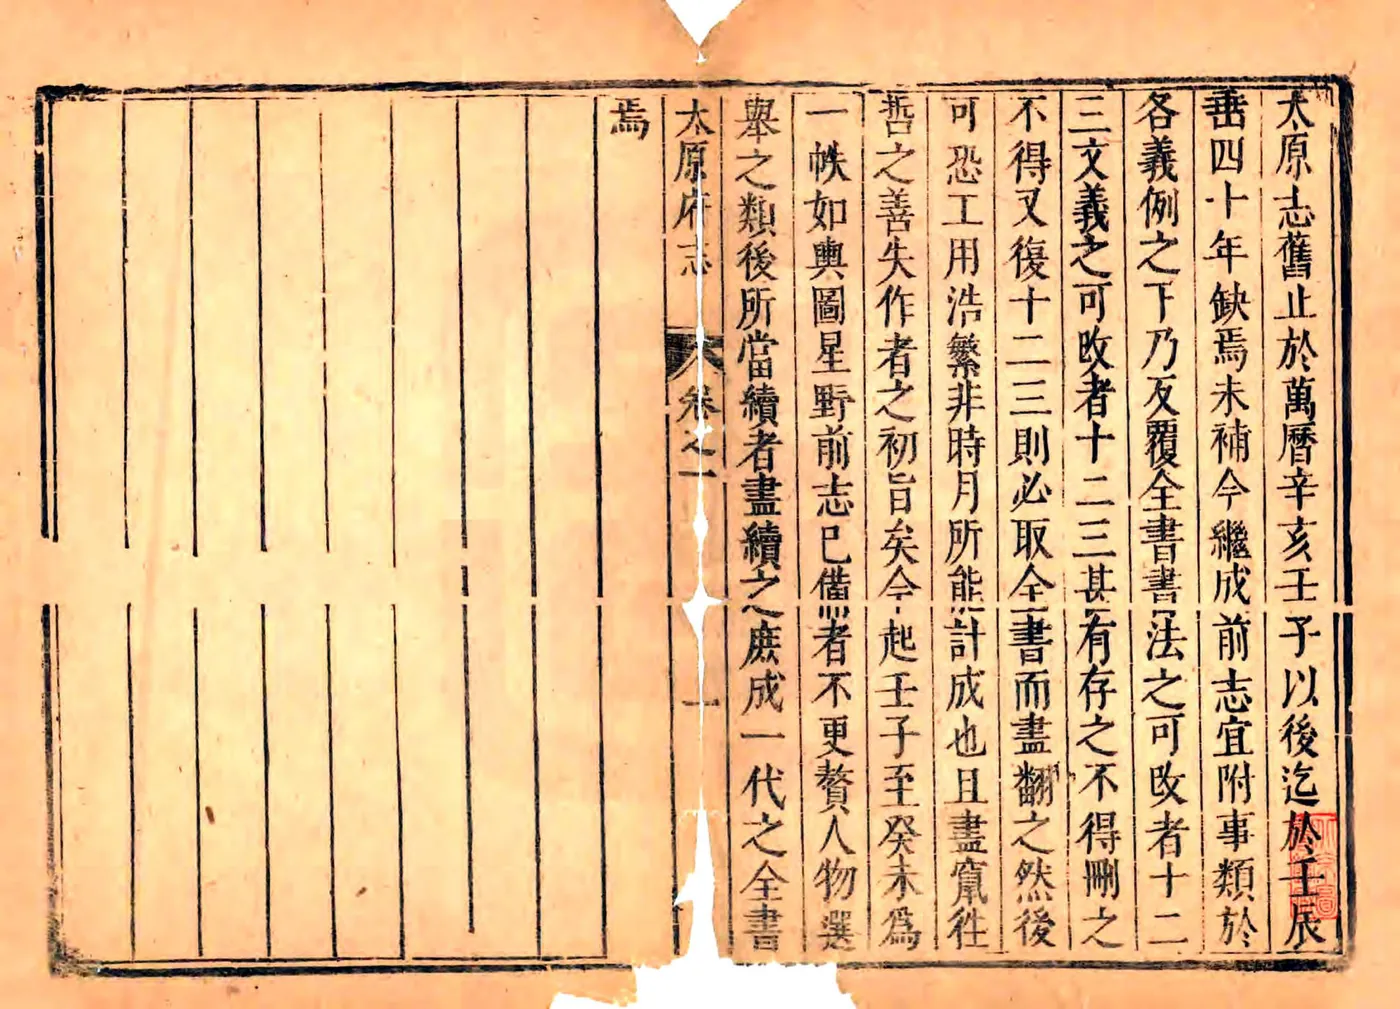 太原志舊止於萬曆辛亥壬子以後迄於壬辰
垂四十年缺焉未補今繼成前志宜附事類於
各義例之下乃反覆全書書法之可攺者十二
三文義之可攺者十二三甚有存之不得刪之
不得又復十二三則必取全書而盡翻之然後
可恐工用浩繁非時月所能計成也且盡竄徃
哲之善失作者之初旨矣今起壬子至癸未為
一帙如輿圖星野前志已備者不更贅人物選
舉之類後所當續者盡續之庶成一代之全書
太原府志 卷之一 一
焉